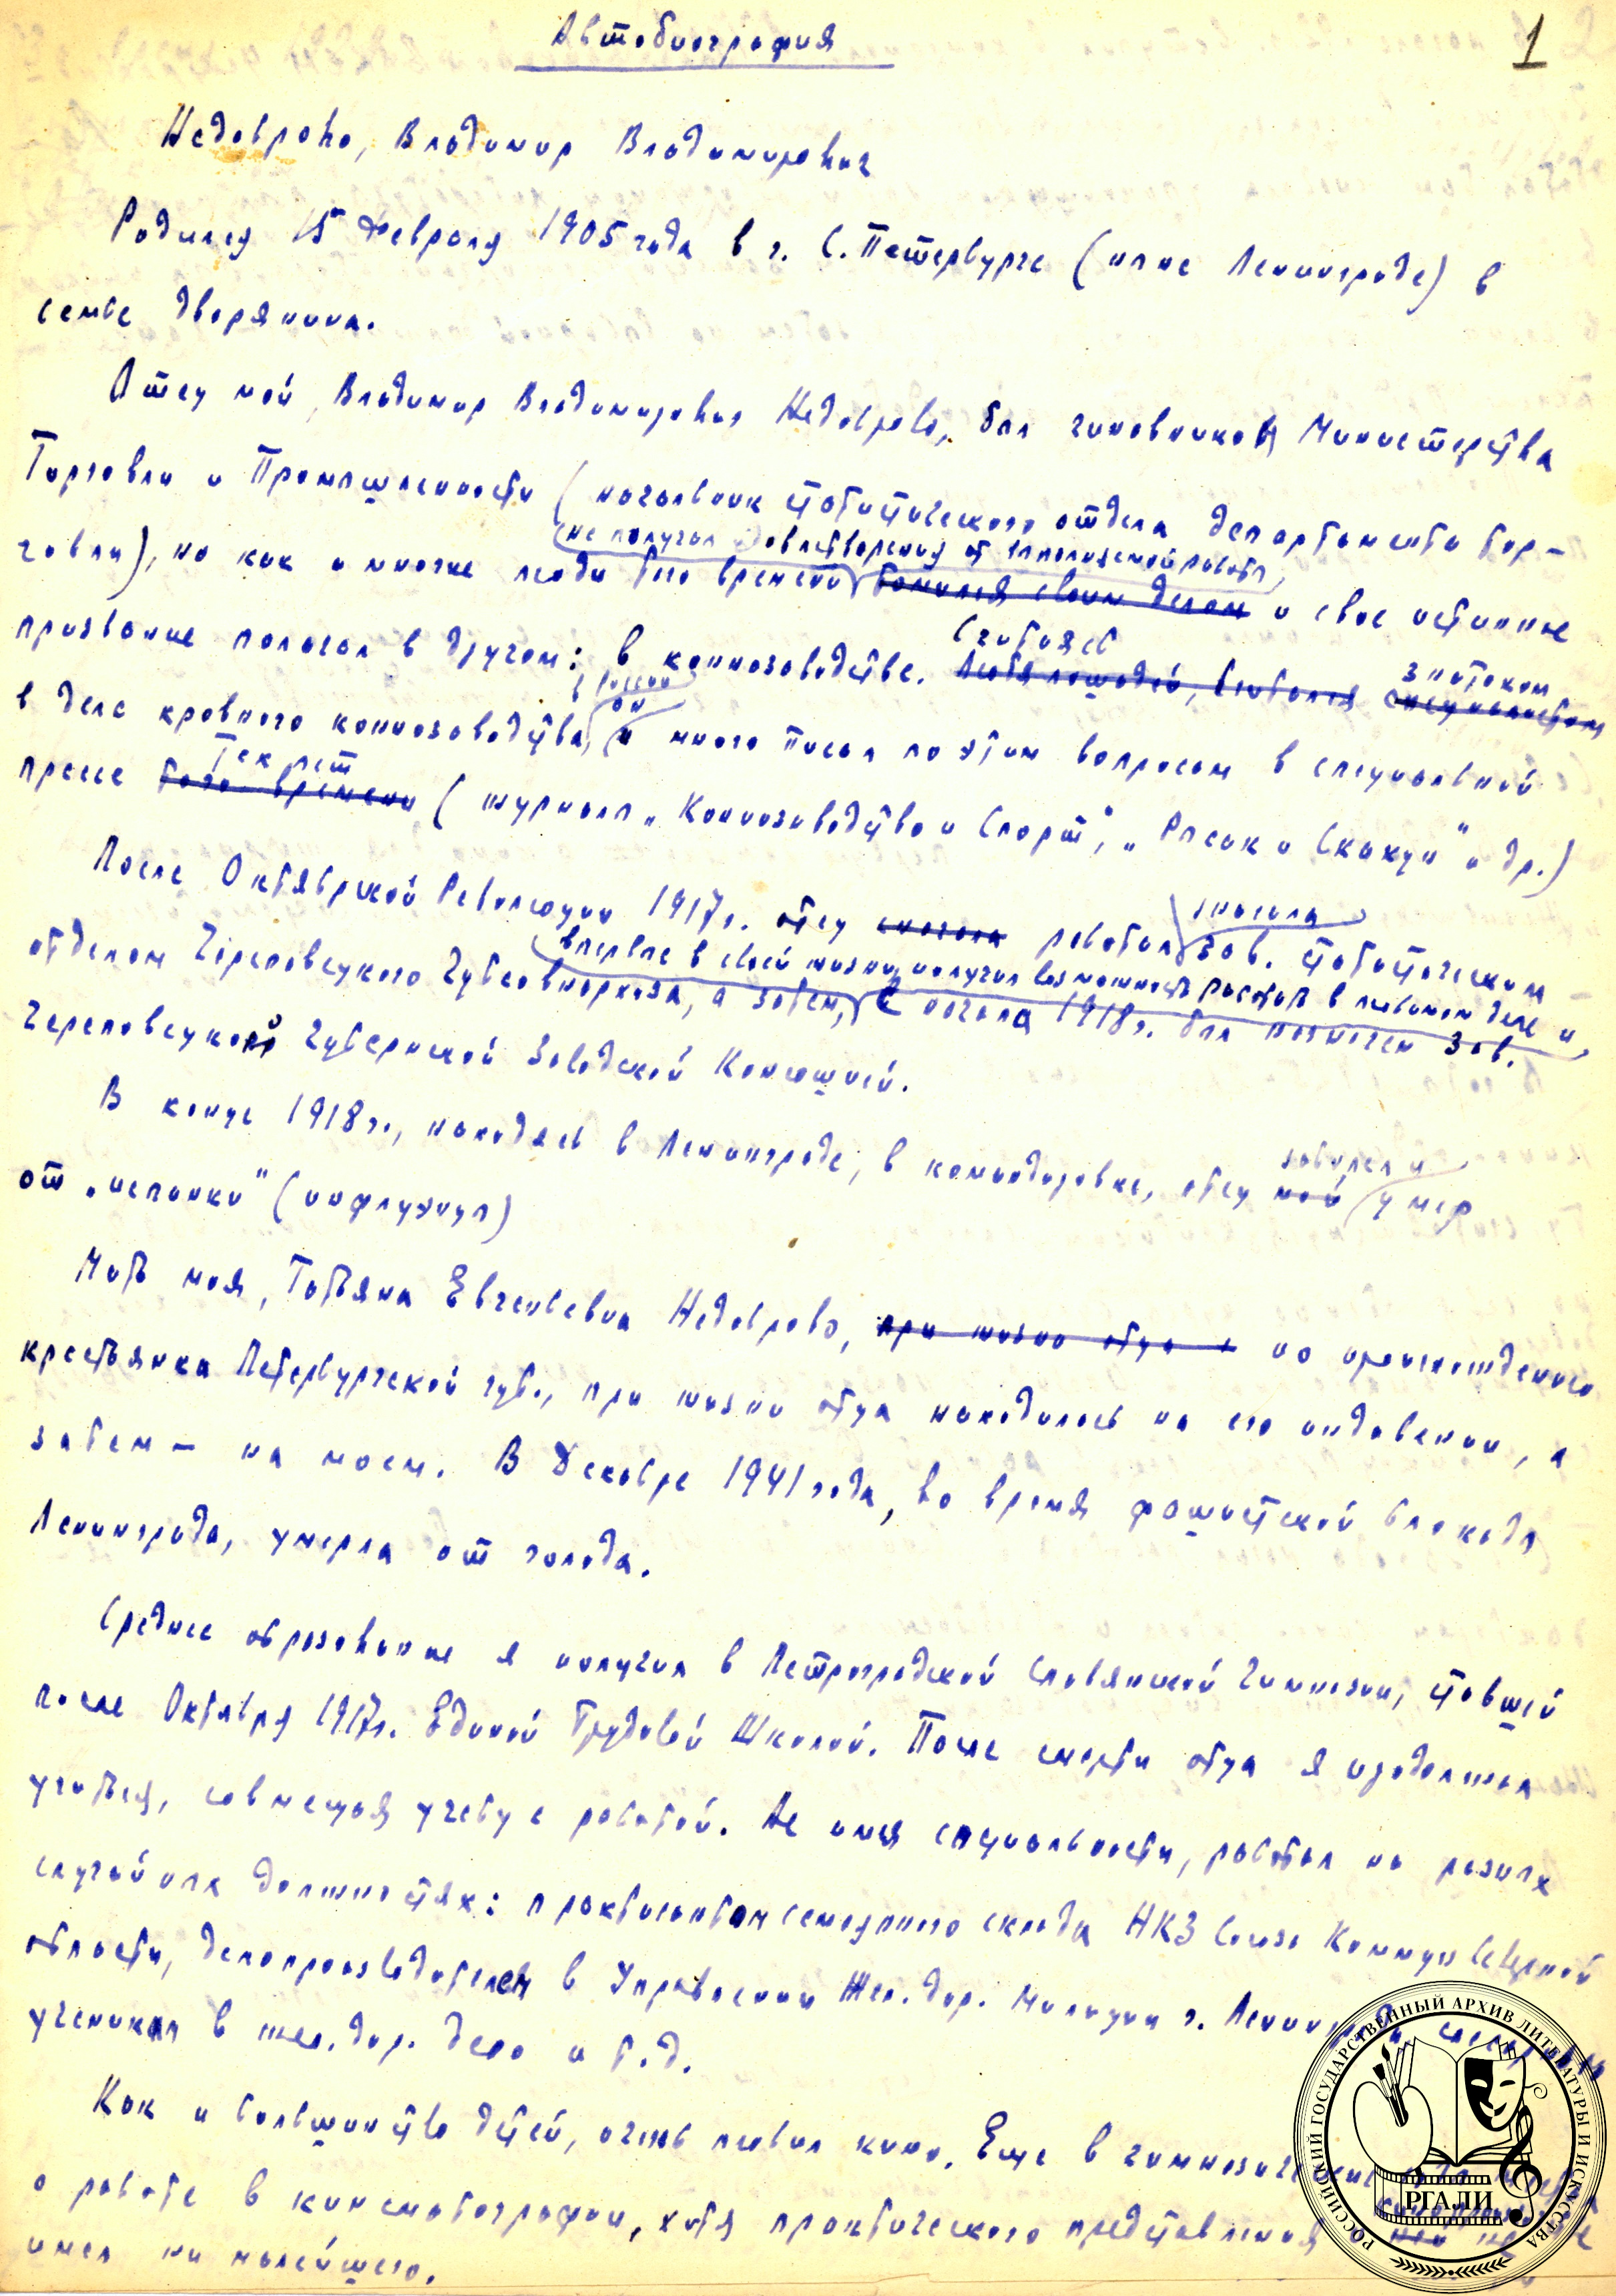 Автобиография
1
Недоброво, Владимир Владимирович
Родился 15 Февраля 1905 года в г. С. Петербурге (ныне Ленинграде) в
семье дворянина.
Отец мой, Владимир Владимирович Недоброво, был чиновником Министерства
Торговли и Промышленности (начальник статистического отдела департамента тор-
не получал удовлетворения от выполняемой работы,
говли), но как и многие люди того времени томился своим делом и свое истинное
призвание полагал в другом: в коннозаводстве. Считаясь Любя лошадей, считался знатоком специалистом
в России он
в деле кровного коннозаводства, и много писал по этим вопросам в специальной
тех лет
прессе того времени (журналы „Коннозаводство и Спорт", „Рысак и Скакун" и др.)
После Октябрьской Революции 1917г. отец сначала работал сначала зав. статистическим
впервые в своей жизни получил возможность работать в любимом деле и
отделом Череповецкого Губсовнархоза, а затем, с начала 1918г. был назначен зав.
Череповецкой Губернской Заводской Конюшней.
В конце 1918г., находясь в Ленинграде, в командировке, отец мой заболел и умер
от „испанки" (инфлуэнцы)
Мать моя, Татьяна Евгеньевна Недоброво, при жизни отца по происхождению
крестьянка Петербургской губ., при жизни отца находилась на его иждивении, а
затем – на моем. В Декабре 1941 года, во время фашистской блокады
Ленинграда, умерла от голода.
Среднее образование я получил в Петроградской Славянской Гимназии, ставшей
после Октября 1917г. Единой Трудовой Школой. После смерти отца я продолжал
учиться, совмещая учебу с работой. Не имея специальности, работал на разных
случайных должностях: практикантом семенного склада НКЗ Союза Коммун Северной
области, делопроизводителем в Управлении Жел. Дор. Милиции г. Ленинграда, слесарным
учеником в жел. дор. депо и т.д.
Как и большинство детей, очень любил кино. Еще в гимназические годы
о работе в кинематографии, хотя практического представления о ней не
имел ни малейшего.
РОССИЙСКИЙ ГОСУДАРСТВЕННЫЙ АРХИВ ЛИТЕРАТУРЫ И ИСКУССТВА
РГАЛИ